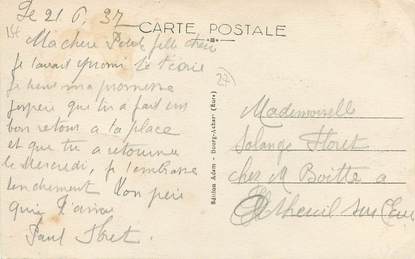 Le 21. 6. 37
CARTE POSTALE
Ma chere Petite fille cheri
Je t'avait promi de t'ecrire
Je tiens ma promesse
j'espere que tu a fait un
bon retour a ta place
et que tu a retourner
le Mercredi, je t'embrasse
tenchement ton pere
qui t'aime
Paul Floret.
Edition Adam - Bourg-Achard (Eure)
Mademoiselle
Solange Floret
chez M Boitte a
theuil sur Eure